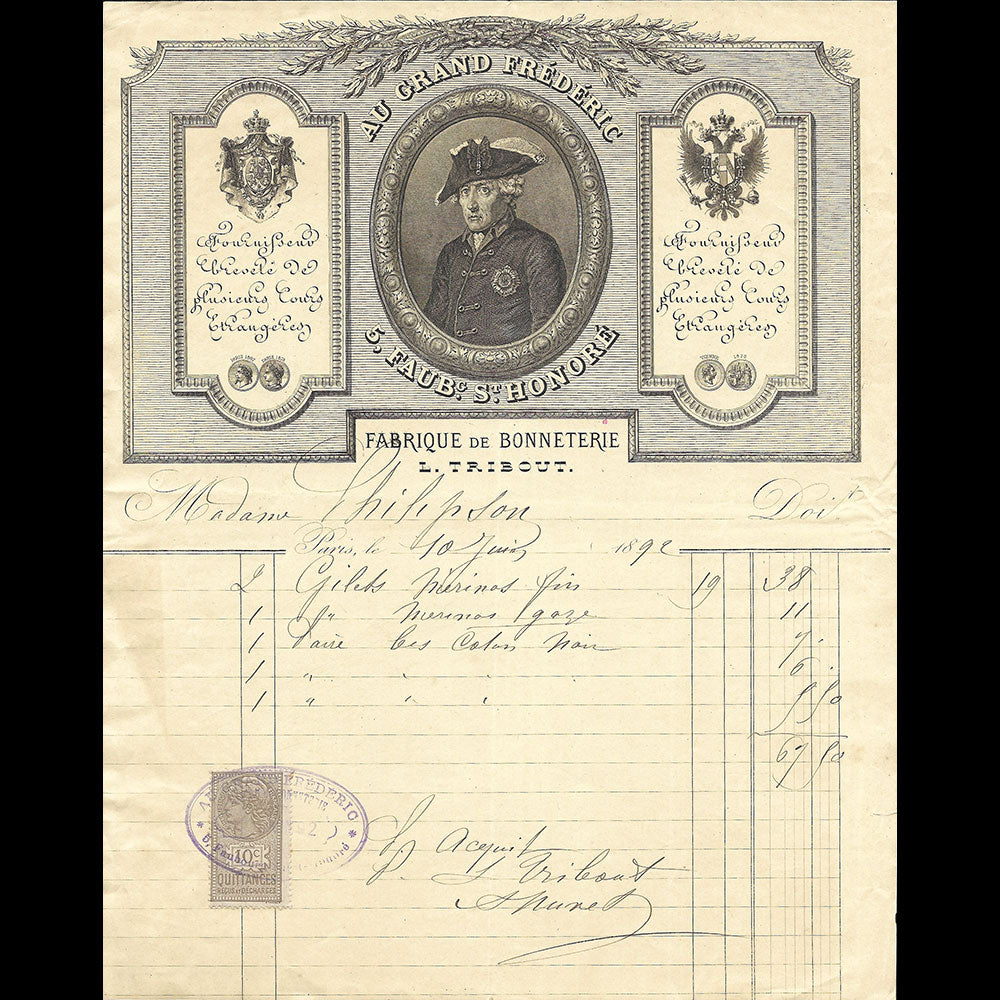 AU GRAND FRÉDÉRIC
Fournisseur
breveté de
plusieurs Cours
Etrangères
Fournisseur
breveté de
plusieurs Cours
Etrangères
5, FAUBG. ST. HONORÉ
FABRIQUE DE BONNETERIE
L. TRIBOUT.
Madame Philipson Doit
Paris, le 10 Juin 1892
2 Gilets Merinos fin 19 38
1 " Merinos gaze 11
1 Paire bas Coton Noir 7
1 " " " 6
1 " " " 5 50
67 50
FRÉDERIC
10c
QUITTANCES
REÇUS ET DÉCHARGES
Pr Acquit
L Tribout